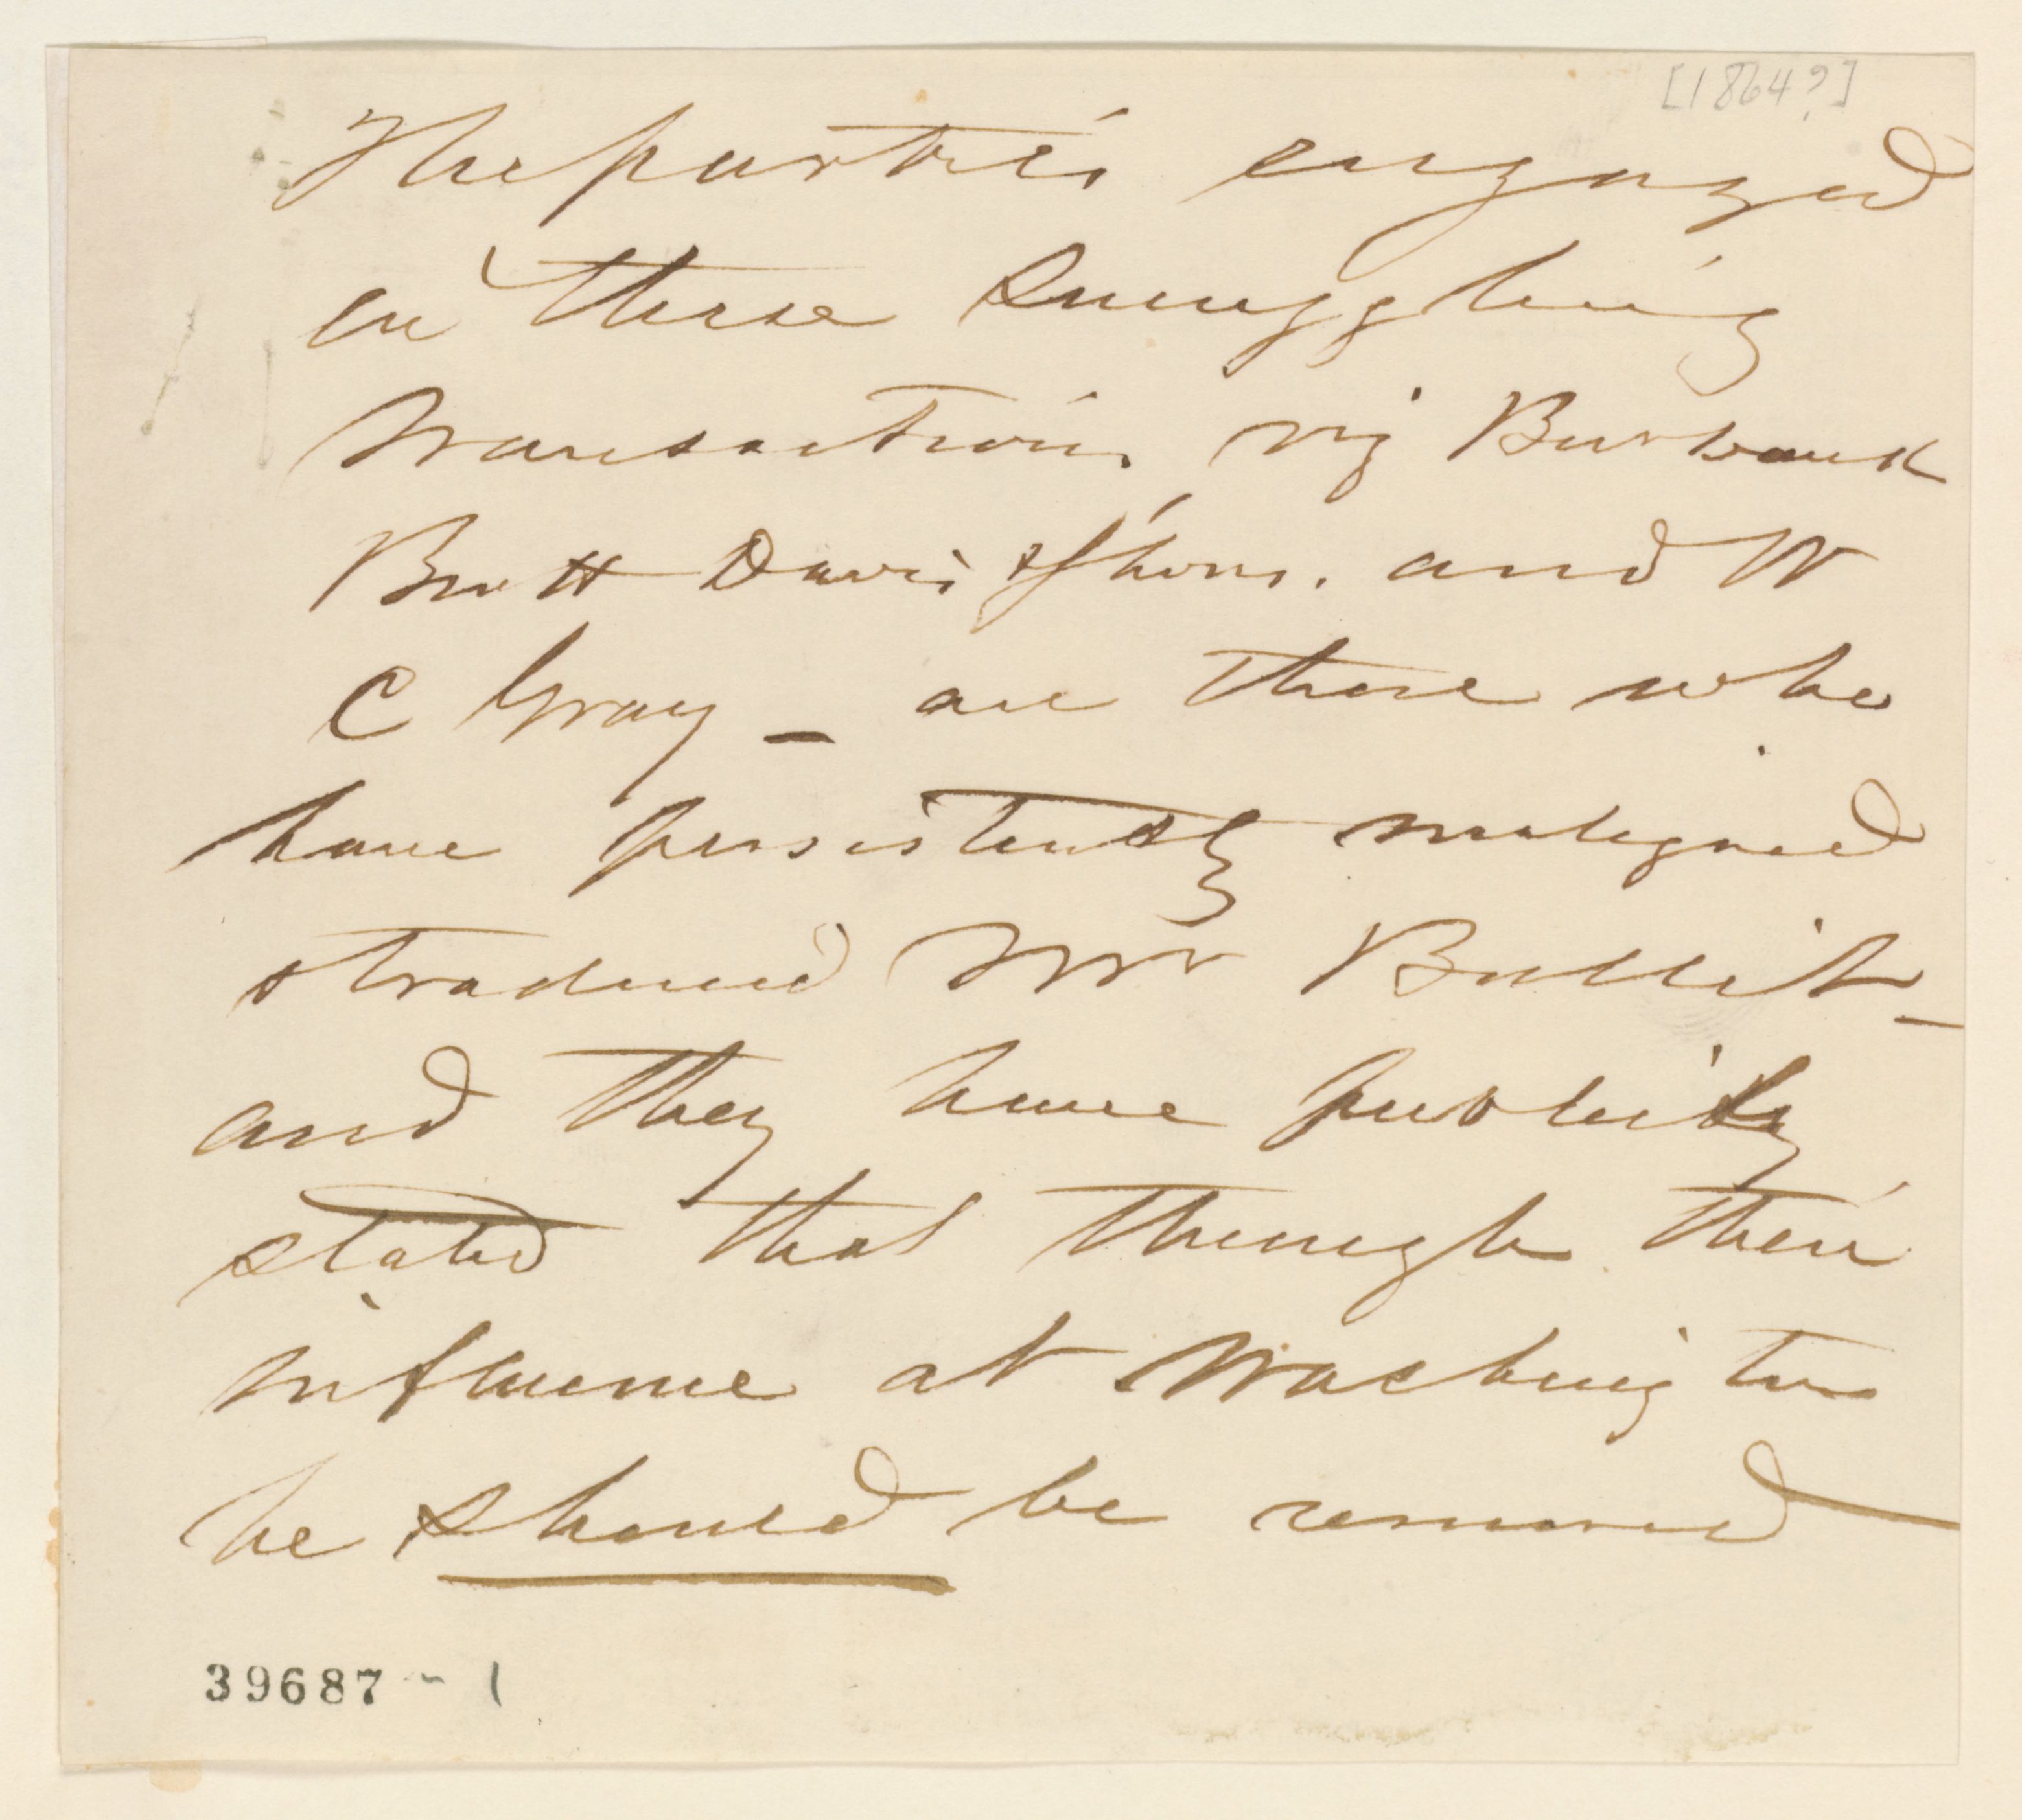 [1864?]
The parties engaged
in these Smuggling
transactions viz Burbank
Brott Davis & Shons. and W
C Gray — are those who
have persistently maligned
& traduced Mr Bullitt —
and they have publicly
stated that through their
influence at Washington
he should be removed
39687 - 1